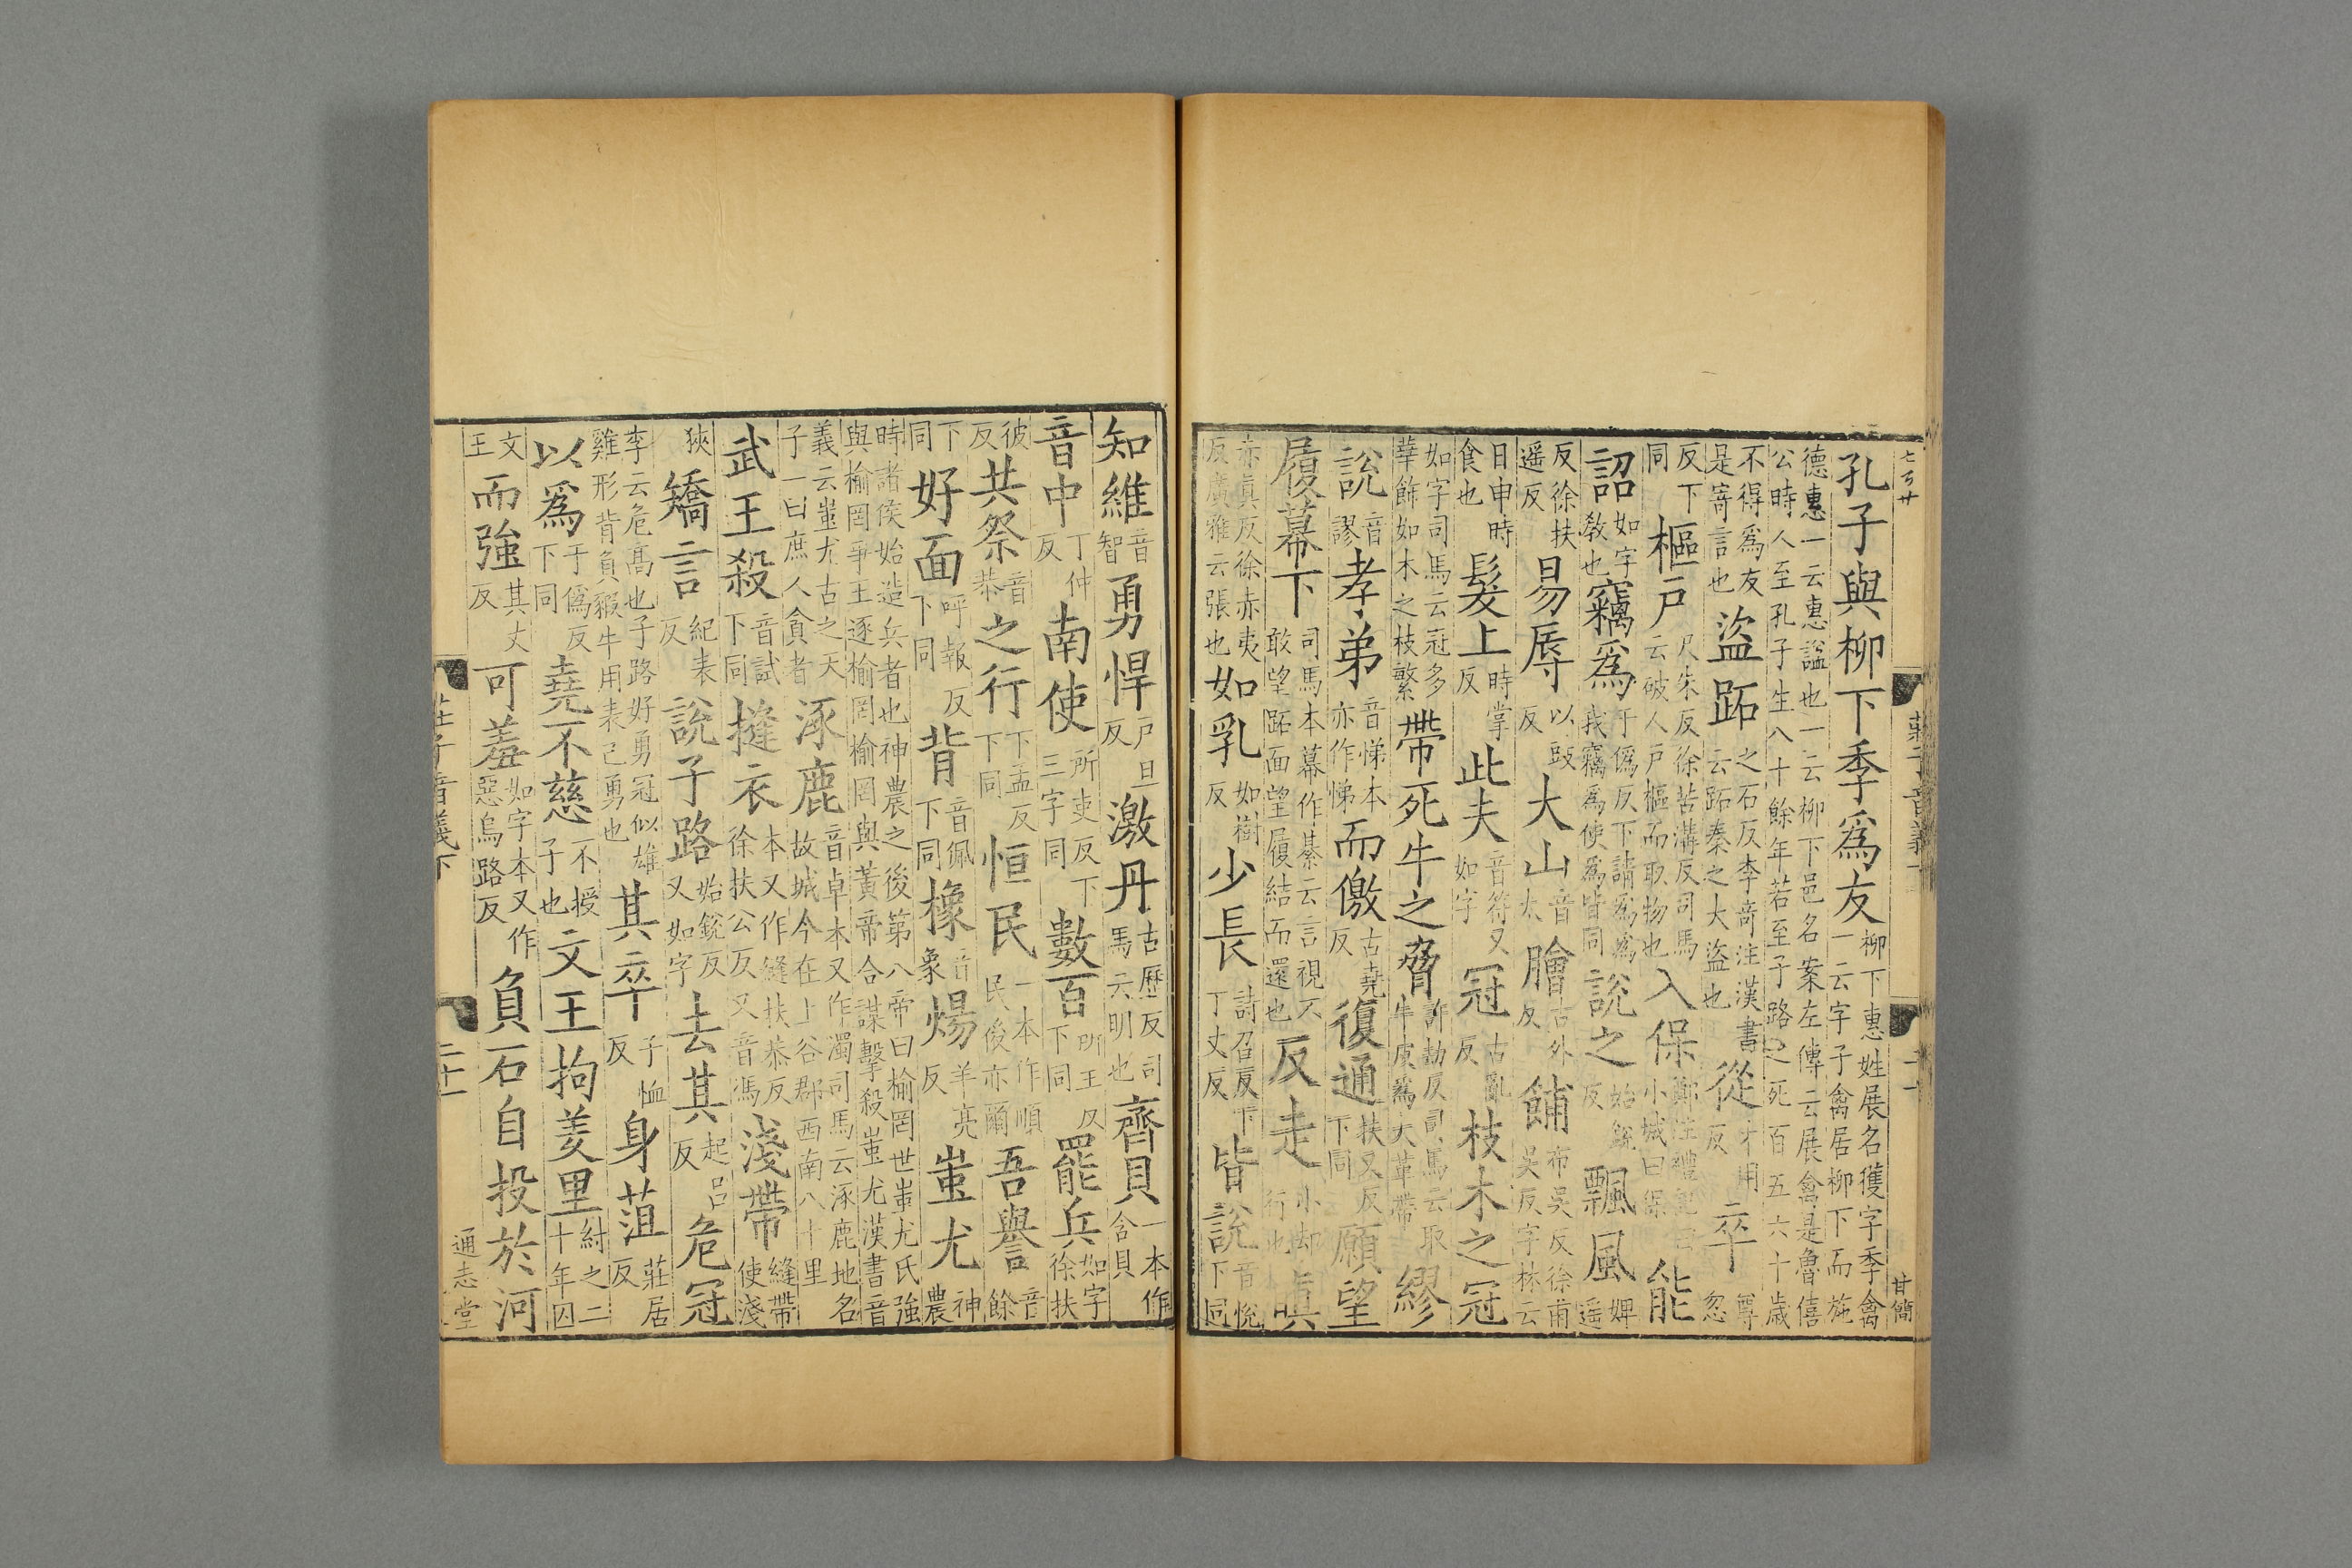 孔子與柳下季爲友柳下惠姓展名獲字季禽一云字子禽居柳下而施
德惠一云惠謚也一云柳下邑名案左傳云展禽是魯僖公時人至孔子生八十餘年若至子路之死百五六十歲
不得爲友是寄言也盜跖之石反李奇注漢書云跖秦之大盜也從才用反卒尊忽
反下同樞戸尺朱反徐苦溝反司馬云破人戸樞而取物也入保鄭注禮記云小城曰保能
詔如字敎也竊爲于僞反下請爲爲我竊爲使爲皆同說之始銳反飄風婢遥
反徐扶遥反易辱以豉反大山音太膾古外反餔布吳反徐甫吳反字林云
日申時食也髮上時掌反此夫音符又如字冠古亂反枝木之冠
如字司馬云冠多華飾如木之枝繁帶死牛之脅許劫反司馬云取牛皮爲大革帶繆
說音謬孝弟音悌本亦作悌而儌古堯反復通扶又反下同願望
履幕下司馬本幕作綦云言視不敢望跖面望履結而還也反走小却行也瞋
赤眞反徐赤夷反廣雅云張也如乳如樹反少長詩召反下丁丈反皆說音悅下同
七百廿
莊子音義下
二十一
甘簡
知維音智勇悍戸旦反激丹古歷反司馬云明也齊貝一本作含貝
音中丁仲反南使所吏反下三字同數百所主反下同罷兵如字徐扶
彼反共祭音恭之行下孟反下同恒民一本作順民後亦爾吾譽音餘
下同好面呼報反下同背音佩下同橡音象煬羊亮反蚩尤神農
時諸侯始造兵者也神農之後第八帝曰榆罔世蚩尤氏強與榆罔爭王逐榆罔榆罔與黃帝合謀擊殺蚩尤漢書音
義云蚩尤古之天子一曰庶人貪者涿鹿音卓本又作濁司馬云涿鹿地名故城今在上谷郡西南八十里
武王殺音試下同摓衣本又作縫扶恭反徐扶公反又音馮淺帶縫帶使淺
狹矯言紀表反說子路始銳反又如字去其起呂反危冠
李云危高也子路好勇冠似雄雞形背負豭牛用表己勇也其卒子恤反身菹莊居反
以爲于僞反下同堯不慈不授子也文王拘羑里紂之二十年囚
文王而強其丈反可羞如字本又作惡烏路反負石自投於河
莊子音義下
二十一
通志堂